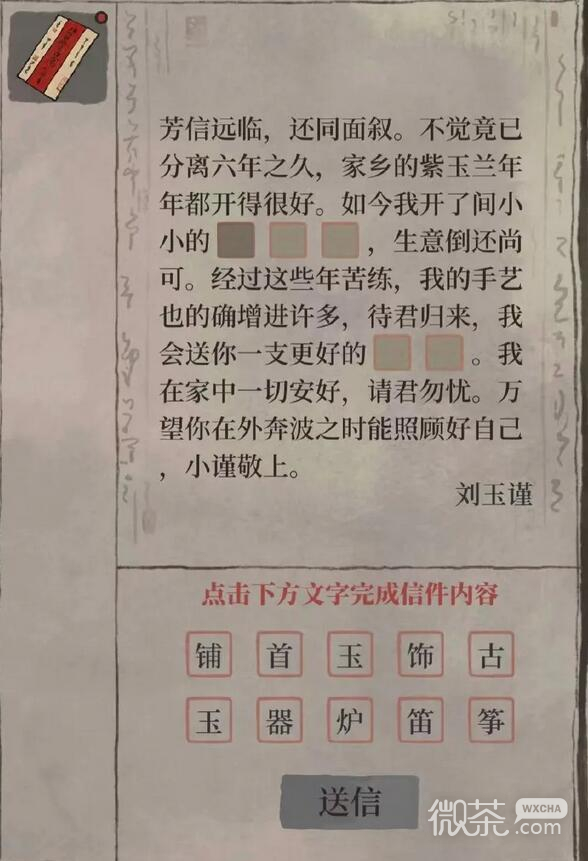 芳信远临，还同面叙。不觉竟已
分离六年之久，家乡的紫玉兰年
年都开得很好。如今我开了间小
小的，生意倒还尚
可。经过这些年苦练，我的手艺
也的确增进许多，待君归来，我
会送你一支更好的。我
在家中一切安好，请君勿忧。万
望你在外奔波之时能照顾好自己
，小谨敬上。
刘玉谨
点击下方文字完成信件内容
铺 首 玉 饰 古
玉 器 炉 笛 筝
送信
微茶
WXCHA
.com